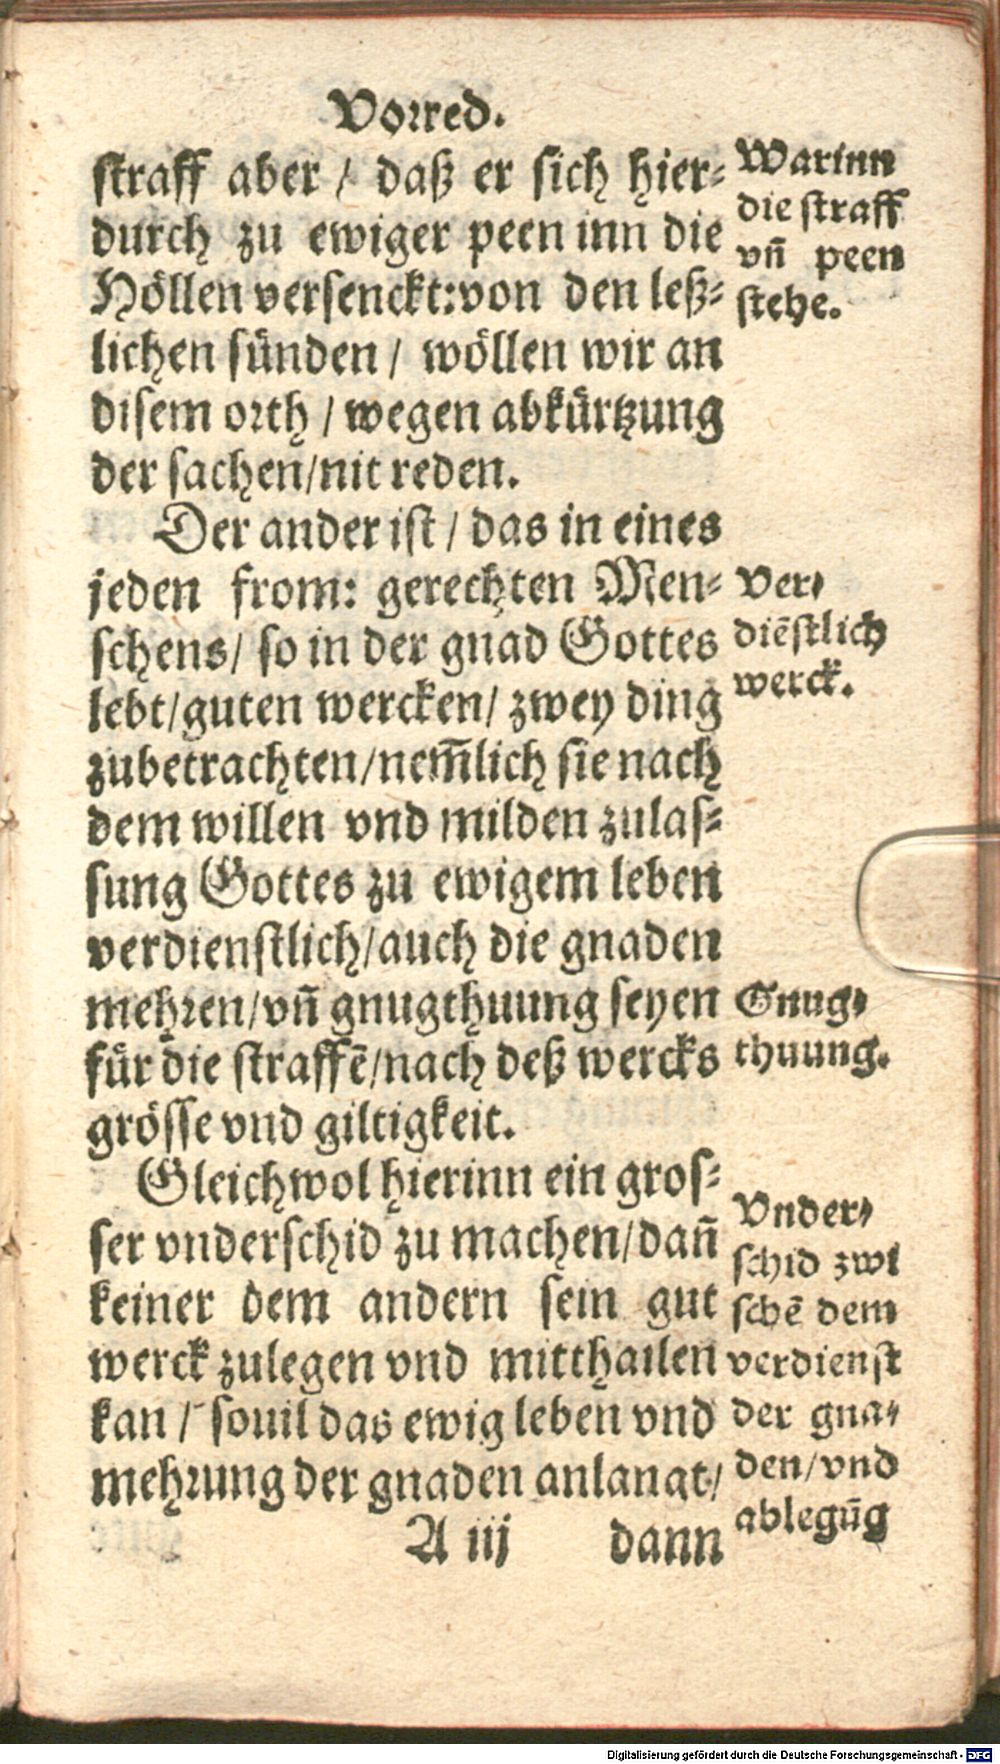 Vorred.
straff aber / daß er sich hier-
durch zu ewiger peen inn die
Höllen versenckt: von den leß-
lichen sünden / wöllen wir an
disem orth / wegen abkürtzung
der sachen / nit reden.
Der ander ist / das in eines
jeden from: gerechten Men-
schens / so in der gnad Gottes
lebt / guten wercken / zwey ding
zubetrachten / nem̃lich sie nach
dem willen vnd milden zulas-
sung Gottes zu ewigem leben
verdienstlich / auch die gnaden
mehren / vñ gnugthuung seyen
für die straffē / nach deß wercks
grösse vnd giltigkeit.
Gleichwol hierinn ein gros-
ser vnderschid zu machen / dañ
keiner dem andern sein gut
werck zulegen vnd mitthailen
kan / souil das ewig leben vnd
mehrung der gnaden anlangt /
A iij dann
Warinn
die straff
vñ peen
stehe.
Ver-
diēstlich
werck.
Gnug-
thuung.
Vnder-
schid zwi
schē dem
verdienst
der gna-
den / vnd
ablegūg
Digitalisierung gefördert durch die Deutsche Forschungsgemeinschaft - DFG